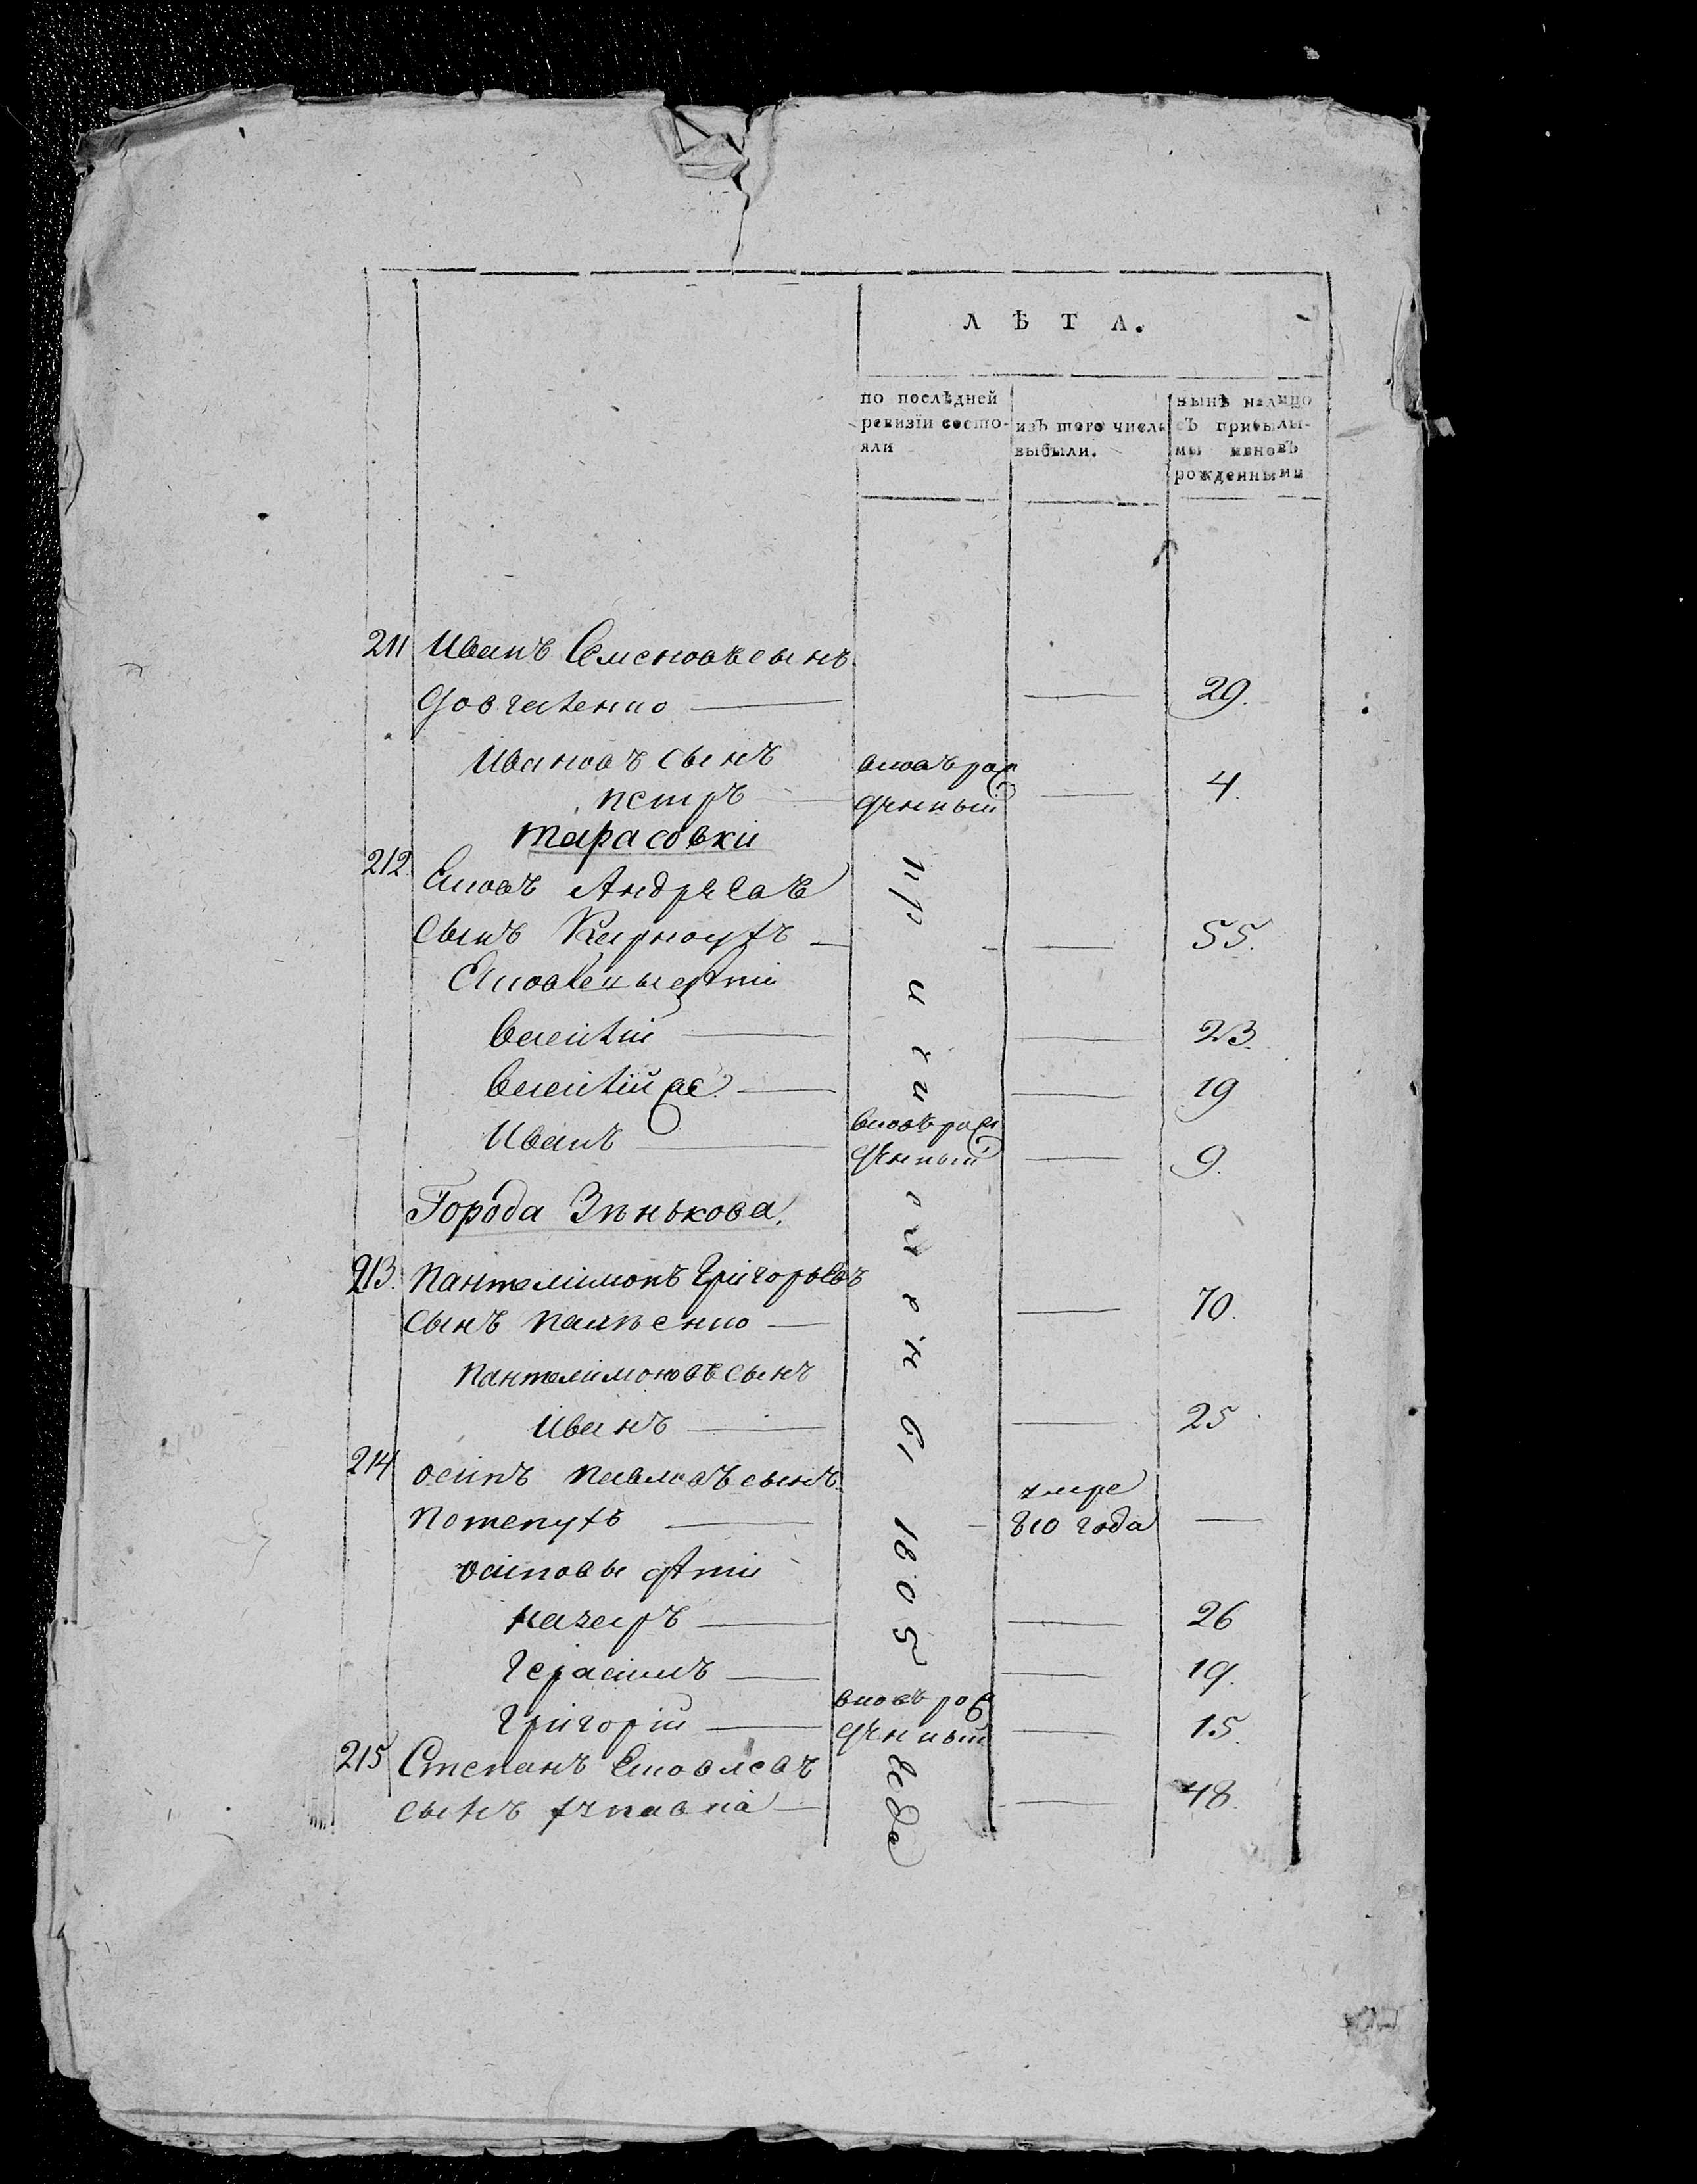 ЛѢТА.
по послѣдней ревизіи состо-яли
изъ того числа выбыли.
нынѣ налицо съ прибылы-ми ивновь рожденными
211 Иванъ Семеновъ сынъ
Довгаленко — 29.
Ивановъ сынъ
петръ вновъ рожденный — 4.
тарасовки
212. Яковъ Андрѣевъ
сынъ — 55.
Яковлевы дѣти
Василій — 23.
Василій же — 19
Иванъ вновъ рожденный — 9.
Города Зѣнькова.
213. Пантелимонъ Григорьевъ
сынъ — 70.
Пантелимоновъ сынъ
Иванъ — 25
214 осипъ Павловъ сынъ
810 года —
осиповы дѣти
назаръ — 26
Герасимъ — 19.
Григорій вновъ рожденный — 15.
215 Степанъ Яковлевъ
сынъ — 48.
причисленъ 1805 года